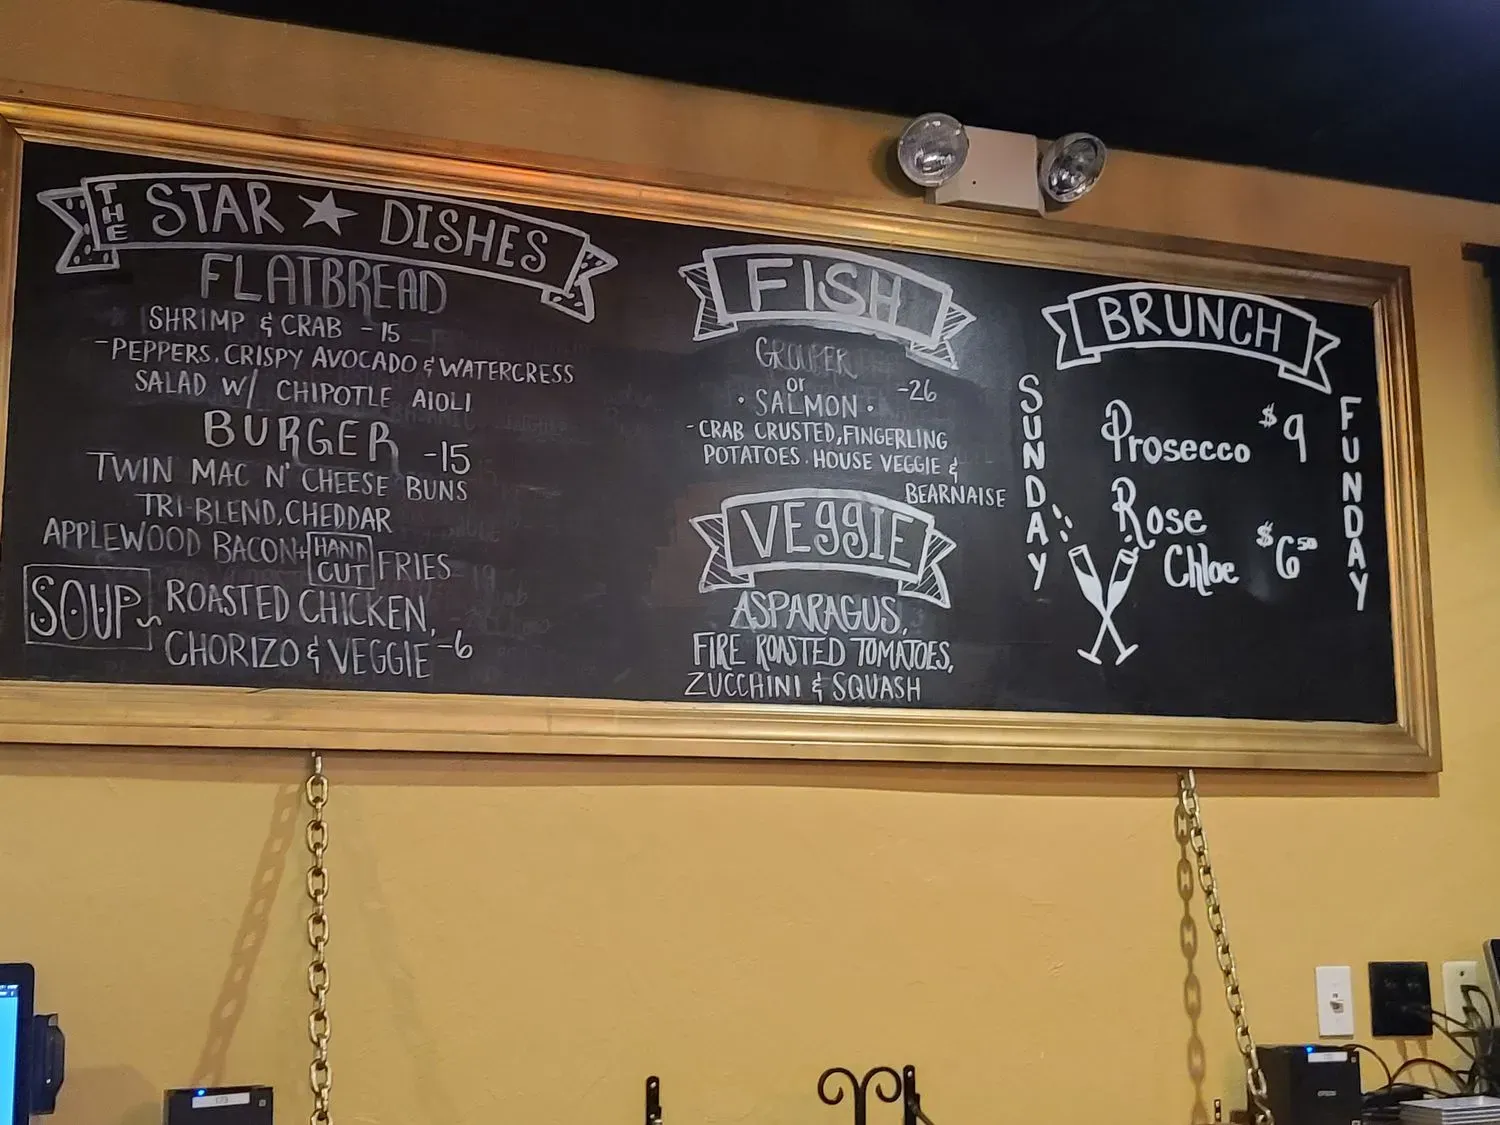 THE STAR DISHES
FLATBREAD
SHRIMP & CRAB - 15
-PEPPERS, CRISPY AVOCADO & WATERCRESS
SALAD W/ CHIPOTLE AIOLI
BURGER -15
TWIN MAC N' CHEESE BUNS
TRI-BLEND, CHEDDAR
APPLEWOOD BACON + HAND CUT FRIES
SOUP~ ROASTED CHICKEN,
CHORIZO & VEGGIE -6
FISH
GROUPER
or
• SALMON • -26
-CRAB CRUSTED, FINGERLING
POTATOES. HOUSE VEGGIE &
BEARNAISE
VEGGIE
ASPARAGUS,
FIRE ROASTED TOMATOES,
ZUCCHINI & SQUASH
BRUNCH
SUNDAY
Prosecco $9
Rose
Chloe $6.50
FUNDAY
173
EPSON